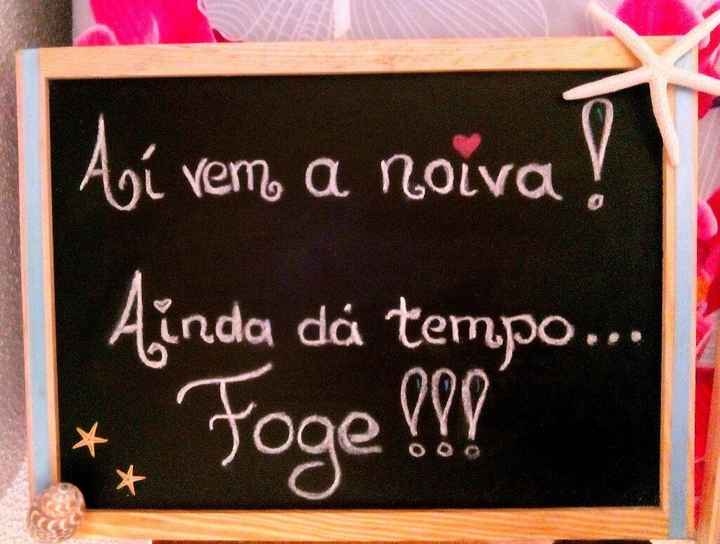 Aí vem a noiva!
Ainda dá tempo...
Foge!!!